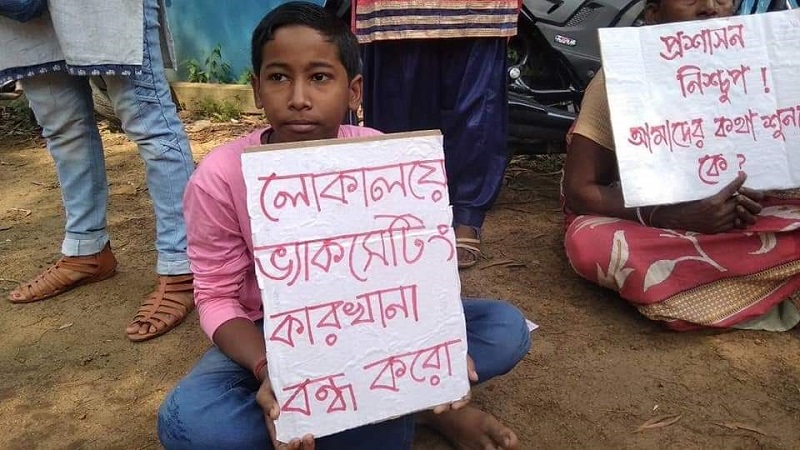 লোকালয়ে
ভ্যাকসেটিং
কারখানা
বন্ধ করো
প্রশাসন
নিশ্চুপ !
আমাদের কথা শুনবে
কে ?